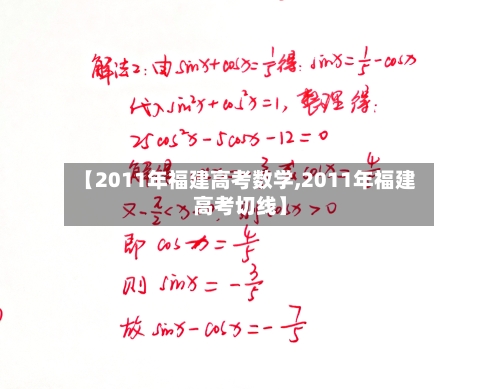 解法2:由sinx+cosx=1/5得:sinx=1/5-cosx
代入sin²x+cos²x=1,整理得:
25cos²x-5cosx-12=0
【2011年福建高考数学,2011年福建
高考切线】
又-π/2<x cosx>0
即 cosx=4/5
则 sinx=-3/5
故 sinx-cosx=-7/5